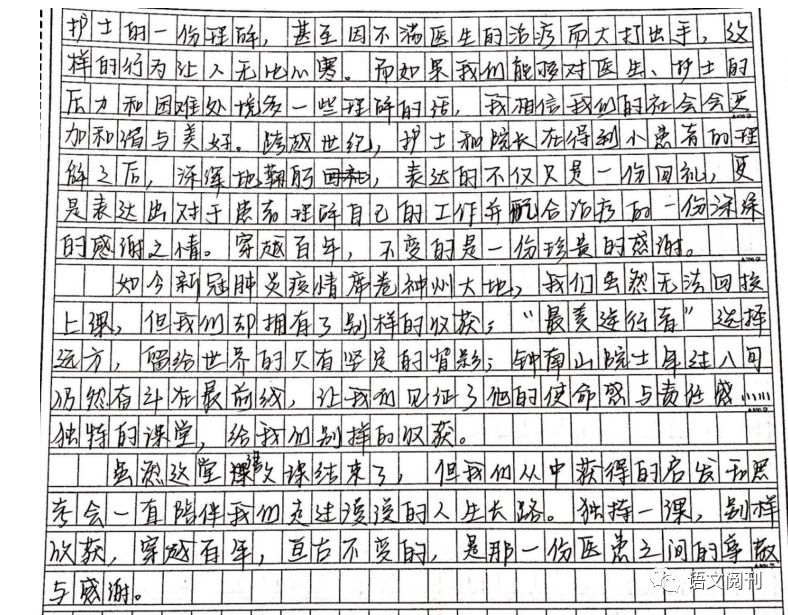 护士的一份理解，甚至因不满医生的治疗而大打出手，这
样的行为让人无比心寒。而如果我们能够对医生、护士的
压力和困难处境多一些理解的话，我相信我们的社会会更
加和谐与美好。跨越世纪，护士和院长在得到小患者的理
解之后，深深地鞠躬，表达的不仅只是一份回礼，更
是表达出对于患者理解自己的工作并配合治疗的一份深深
的感谢之情。穿越百年，不变的是一份珍贵的感谢。
如今新冠肺炎疫情席卷神州大地，我们虽然无法回校
上课，但我们却拥有了别样的收获；“最美逆行者”选择
远方，留给世界的只有坚定的背影；钟南山院士年过八旬
仍然奋斗在最前线，让我们见证了他的使命感与责任感……
独特的课堂，给我们别样的收获。
虽然这堂课结束了，但我们从中获得的启发和思
考会一直陪伴我们走过漫漫的人生长路。独特一课，别样
收获，穿越百年，亘古不变的，是那一份医患之间的尊敬
与感谢。
语文阅刊